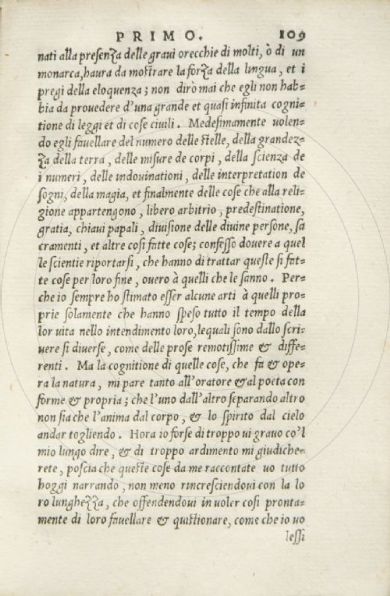 PRIMO. 109
nati alla presenza delle graui orecchie di molti, ò di un
monarca, haura da mostrare la forza della lingua, et i
pregi della eloquenza; non dirò mai che egli non hab=
bia da prouedere d'una grande et quasi infinita cogni=
tione di leggi et di cose ciuili. Medesimamente uolen=
do egli fauellare del numero delle stelle, della grandez=
za della terra, delle misure de corpi, della scienza de
i numeri, delle indouinationi, delle interpretation de
sogni, della magia, et finalmente delle cose che alla reli=
gione appartengono, libero arbitrio, predestinatione,
gratia, chiaui papali, diuisione delle diuine persone, sa
cramenti, et altre cosi fatte cose; confesso douere a quel
le scientie riportarsi, che hanno di trattar queste si fat=
te cose per loro fine, ouero à quelli che le sanno. Per=
che io sempre ho stimato esser alcune arti à quelli pro=
prie solamente che hanno speso tutto il tempo della
lor uita nello intendimento loro, lequali sono dallo scri=
uere si diuerse, come delle prose remotissime & diffe=
renti. Ma la cognitione di quelle cose, che fa & ope=
ra la natura, mi pare tanto all'oratore & al poeta con
forme & propria; che l'uno dall'altro separando altro
non sia che l'anima dal corpo, & lo spirito dal cielo
andar togliendo. Hora io forse di troppo ui grauo co'l
mio lungo dire, & di troppo ardimento mi giudiche=
rete, poscia che queste cose da me raccontate uo tutto
hoggi narrando, non meno rincrescendoui con la lo
ro lunghezza, che offendendoui in uoler cosi pronta=
mente di loro fauellare & quistionare, come che io uo
lessi